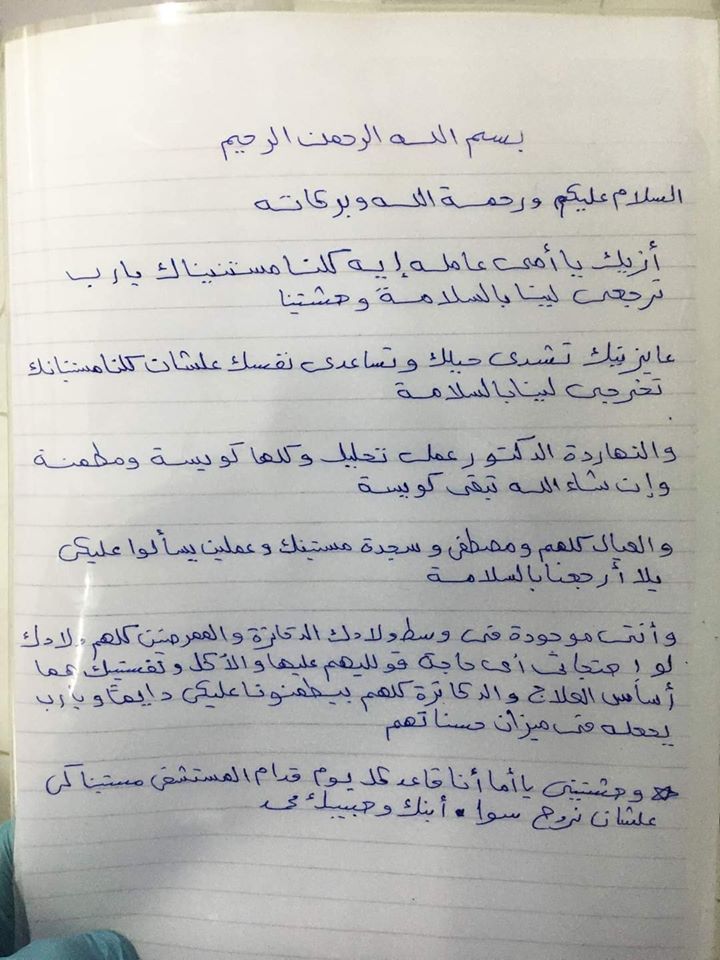 بسم الله الرحمن الرحيم
السلام عليكم ورحمة الله وبركاته
أزيك يا أمى عامله إيه كلنا مستنيناك يارب
ترجعى لينا بالسلامة وحشتينا
عايزينك تشدى حيلك وتساعدى نفسك علشان كلنا مستنانك
تخرجى لينا بالسلامة
والنهاردة الدكتور عمل تحليل وكلها كويسة ومطمنة
وإن شاء الله تبقى كويسة
والعيال كلهم ومصطفى وسجدة مستينك وعملين يسألوا عليكى
يلا أرجعنا بالسلامة
وأنتى موجودة فى وسط ولادك الدكاترة والممرضين كلهم ولادك
لو احتجاتى أى حاجة قوليهم عليها والأكل ونفستيك هما
أساس العلاج والدكاترة كلهم بيطمنونا عليكى دايمًا ويارب
يجعله فى ميزان حسناتهم
وحشتينى يا أما أنا قاعد كل يوم قدام المستشفى مستيناكى
علشان نروح سوا . أبنك وحبيبك محمد